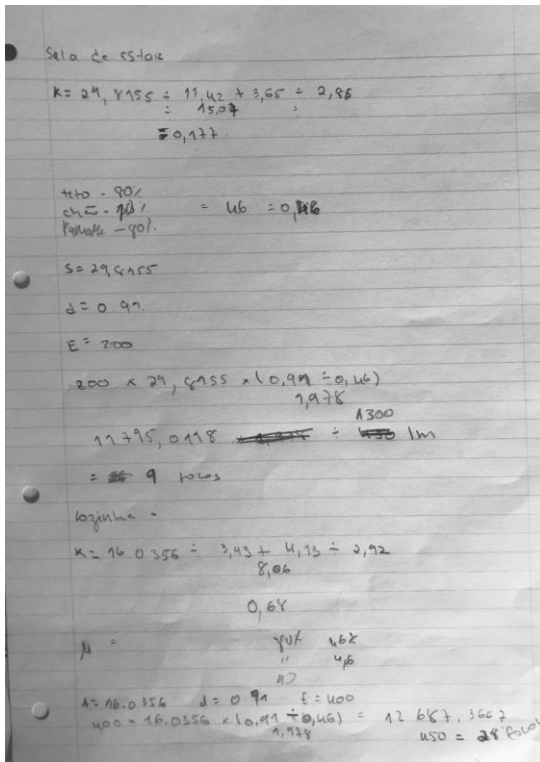 Sala de estar
K = 29,8155 ÷ 11,42 + 3,65 ÷ 2,85
÷ 15,07 ÷
= 0,177.
teto - 80%
chão -
= 46 = 0,46
- 90%.
S = 29,8155
d = 0.91.
E = 200
200 × 29,8155 × (0,91 ÷ 0,46)
1,978
1300
11795,0118 ÷ lm
= 9 focos
Cozinha -
K = 16.0356 ÷ 3,93 + 4,13 ÷ 2,92
8,06
0,68
μ =
468
" 4,6
A = 16.0356 d = 0.91 E = 400
400 = 16.0356 × (0,91 ÷ 0,46) = 12687.3667
1,978
450 = 28 focos